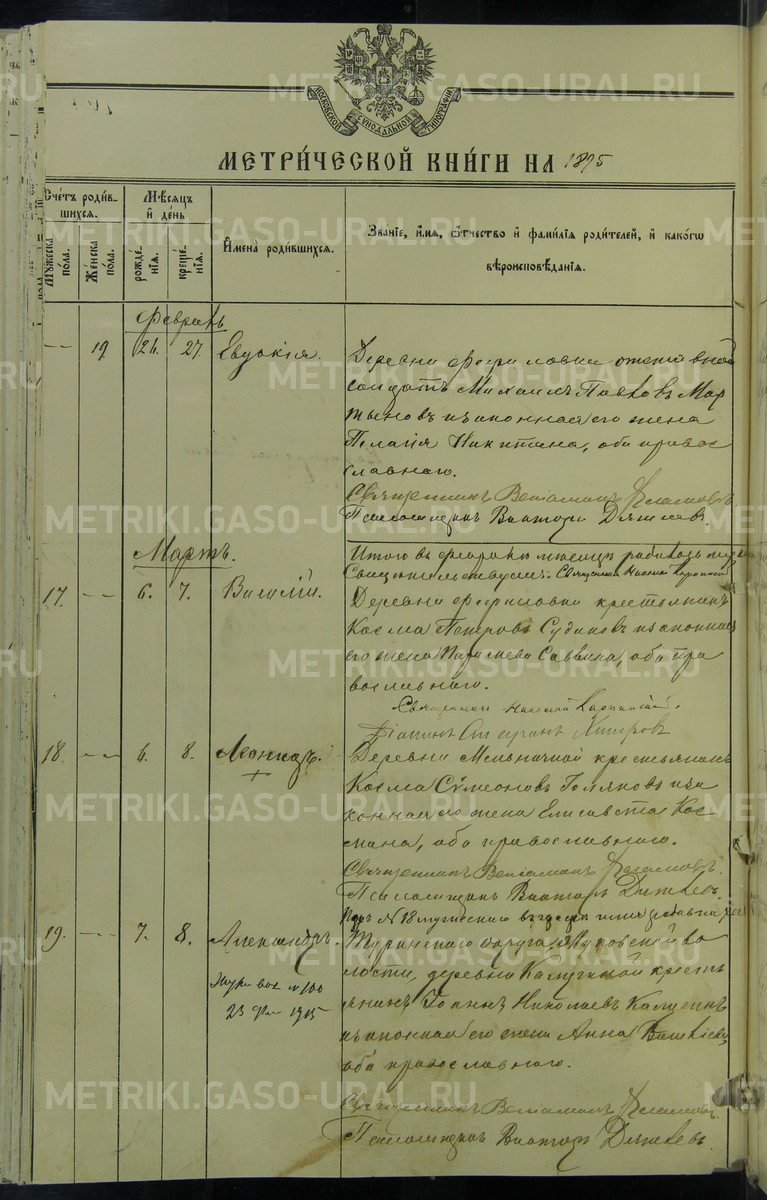 МОСКОВСКОЙ СѴНОДАЛЬНОЙ ТИПОГРАФІИ
МЕТРИ́ЧЕСКОЙ КНИ́ГИ НА 1895
Сче́тъ роди́в-
шихся.
Мѣ́сяцъ
и҆ де́нь
Му́жеска
по́ла.
Же́нска
по́ла.
рожде́-
нїя.
креще́-
нїя.
И҆мена̀ роди́вшихся.
Зва́нїе, и҆́мя, ѻ҆́тчество и҆ фами́лїя роди́телей, и҆ како́гѡ
вѣроисповѣ́данїя.
Февраль
— 19 26. 27. Евдокія.
Деревни
солдатъ Михаилъ Павловъ Мар
тыновъ и законная его жена
Пелагія Никитина, оба правос
лавнаго.
Священникъ Веніаминъ
Псаломщикъ Викторъ
Итого въ февралѣ мѣсяцѣ
Священникъ Николай
Мартъ.
17. — 6. 7. Василій.
Деревни крестьянинъ
Косма Петровъ Судаковъ и законная
его жена Параскева Саввина, оба пра
вославнаго.
Священникъ Николай
18. — 6. 8. Леонидъ.
Деревни Мельничной крестьянинъ
Косма Сѵмеоновъ Голяковъ и за
конная его жена Елисавета Кос
мина, оба православнаго.
Священникъ Веніаминъ
Псаломщикъ Викторъ
№ 18
19. — 7. 8. Александръ.
№ 100
23 1915
Туринскаго округа, Жуковской во
лости, деревни Калугиной кресть
янинъ Іоаннъ Николаевъ Калугинъ
и законная его жена Анна
оба православнаго.
Священникъ Веніаминъ
Псаломщикъ Викторъ
METRIKI.GASO-URAL.RU